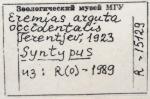 Зоологический музей МГУ
Eremias arguta
occidentalis
Terentjev, 1923
Syntypus
из: R(o)-1989
R-15129